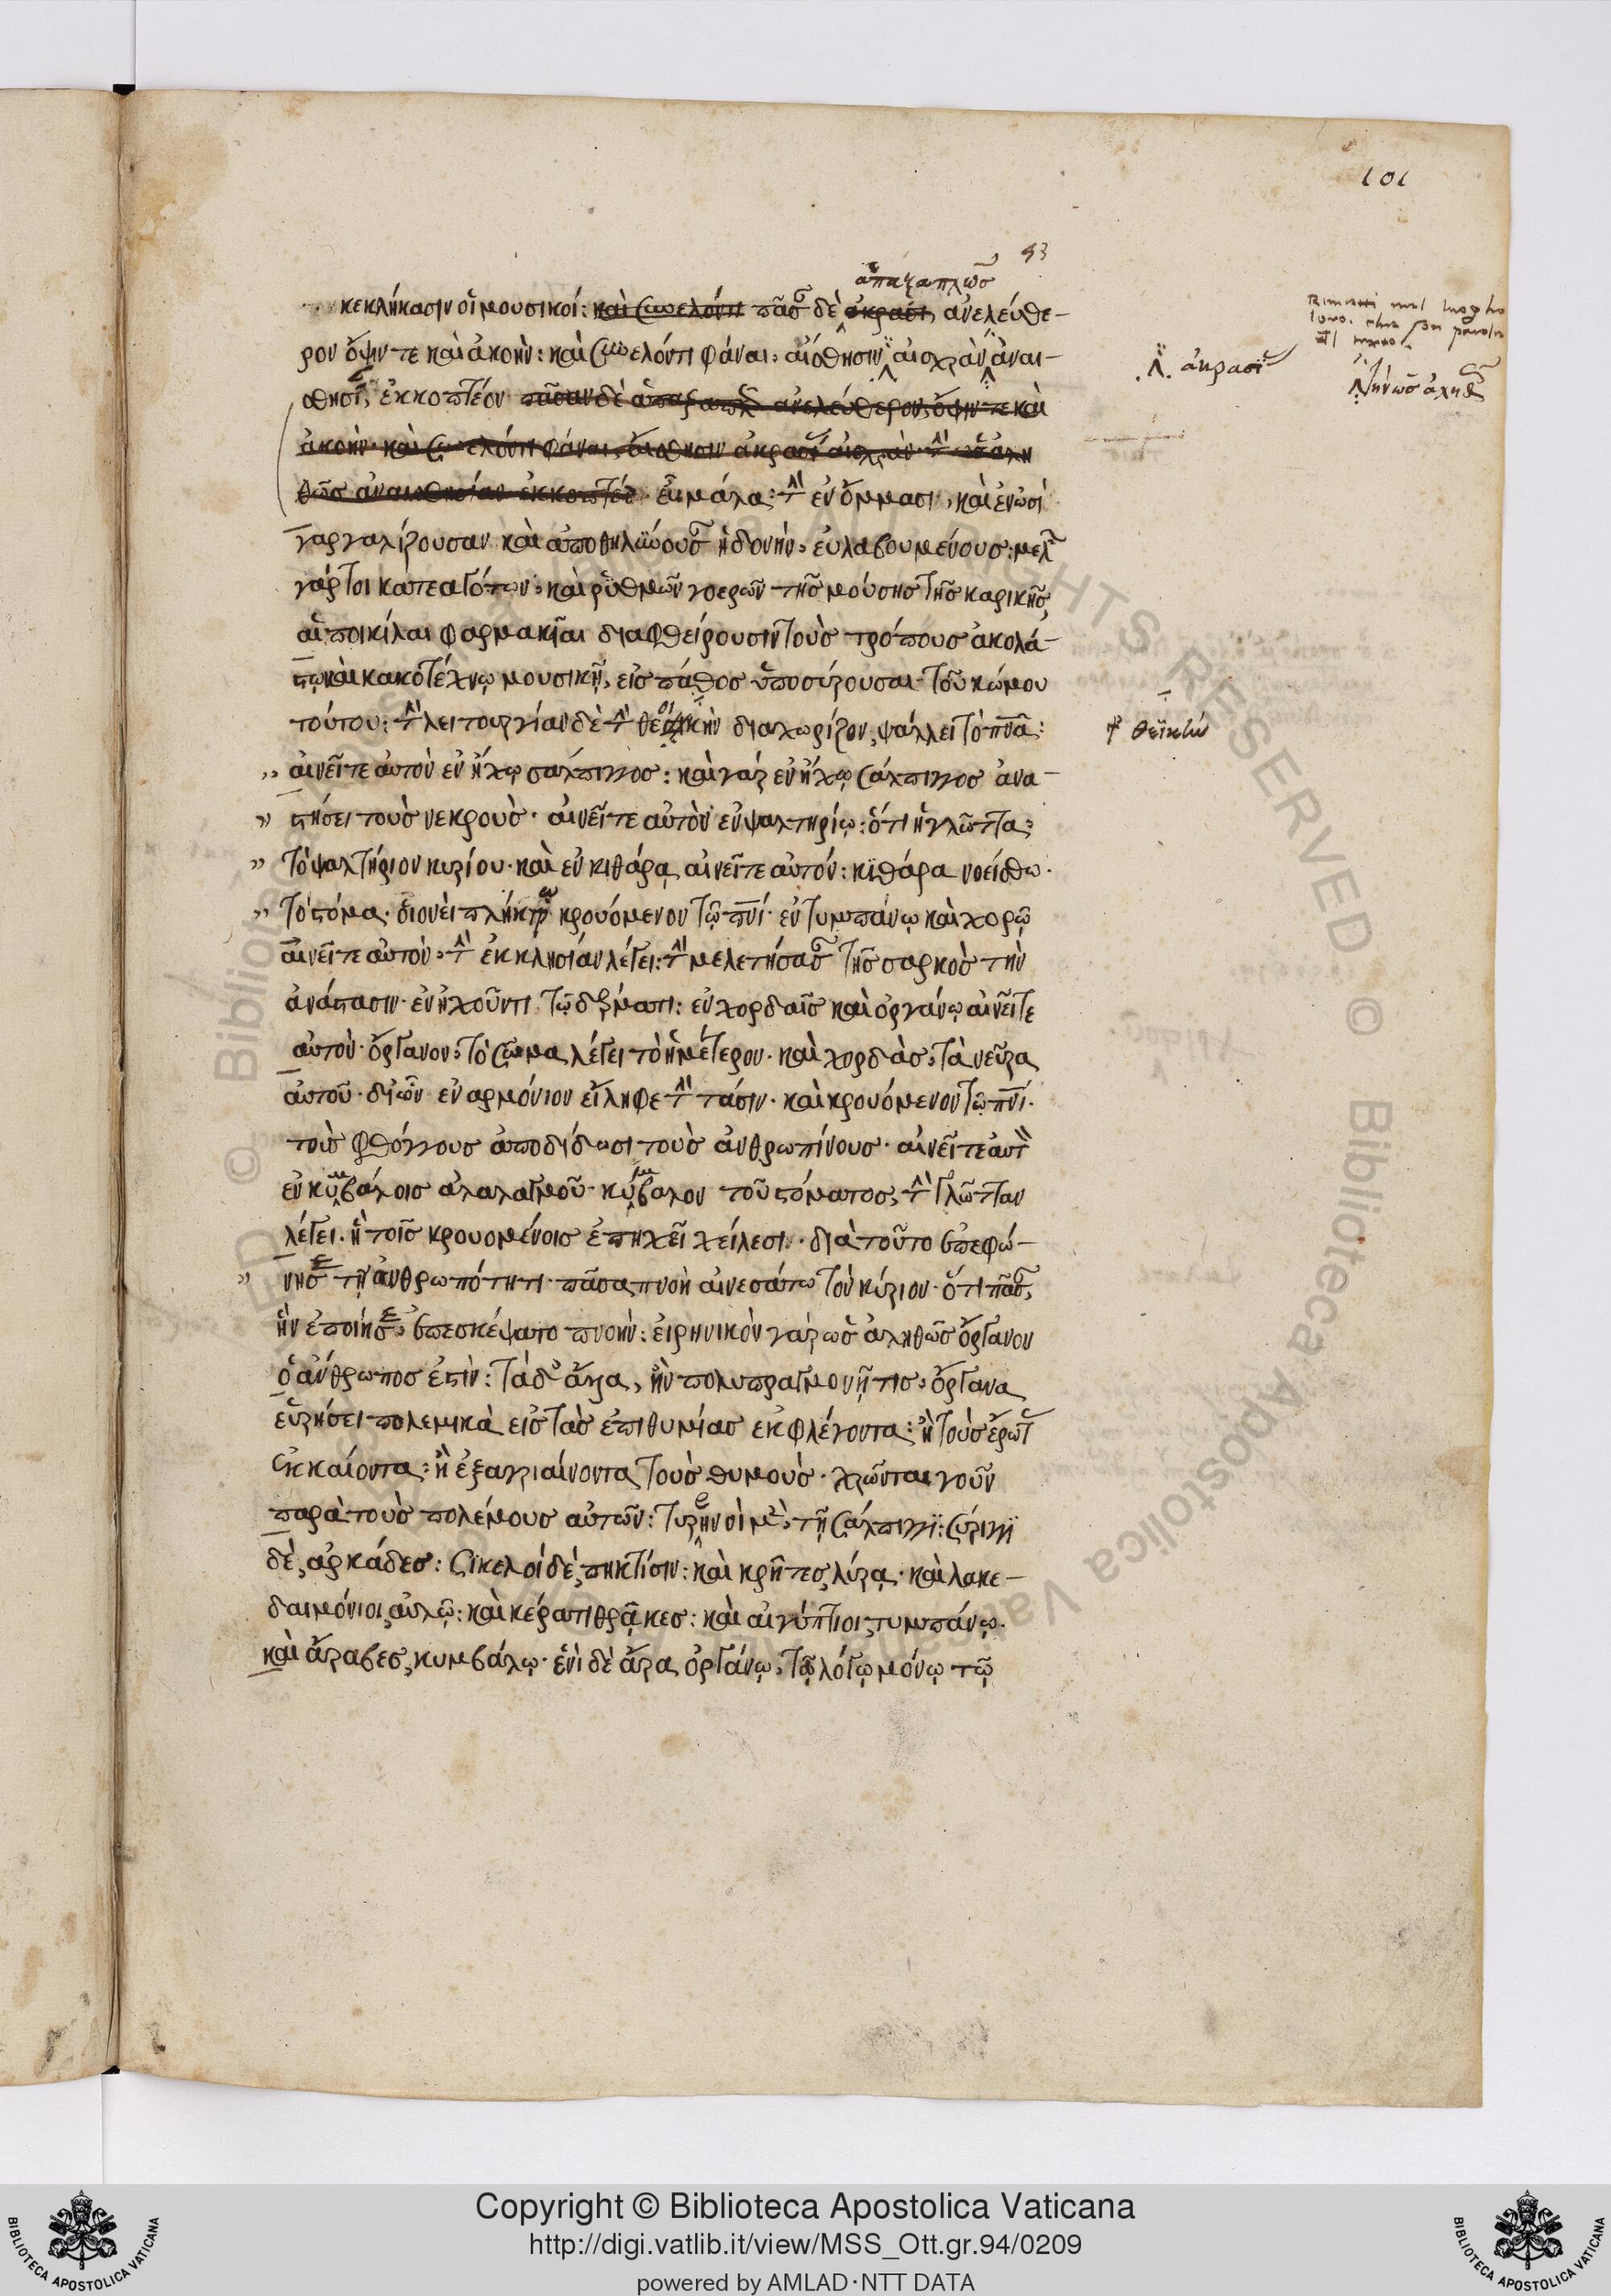 101
93
ἅπαξαπλῶσ
κεκλήκασιν οἱ μουσικοί: καὶ συνελόντι πᾶσαν δὲ ἀκρασί, ἀνελεύθε-
ρον ὄψιν τε καὶ ἀκοὴν: καὶ συνελόντι φάναι, αἴσθησιν αἰσχρὰν ἀναι-
.λ. ἀκρασί
σθησί, ἐκκοπτέον πᾶσαν δὲ ἁπαξαπλῶς ἀνελεύθερον, ὄψιν τε καὶ
τὴν ὡσ ἀληθ
ἀκοὴν· καὶ συνελόντι φάναι, αἴσθησιν ἀκρασί αἰσχρὰν· τὴν ὡσ ἀλη
θῶσ ἀναισθησίαν ἐκκοπτέον· εὖ μάλα: τὴν ἐν ὄμμασι, καὶ ἐν ὠσὶ
γαργαλίζουσαν καὶ ἀποθηλύνουσ ἡδονὴν, εὐλαβουμένουσ: μελ
γάρ τοι κατεαγότων, καὶ ῥυθμῶν γοερῶν τῆσ μούσησ τῆσ καρικῆσ,
αἱ ποικίλαι φαρμακεῖαι διαφθείρουσιν τοὺσ τρόπουσ ἀκολά-
στῳ καὶ κακοτέχνῳ μουσικῇ, εἰσ πάθοσ ὑποσύρουσαι τοῦ κώμου
τούτου: τὴν λειτουργίαν δὲ τὴν θεϊκὴν διαχωρίζον, ψάλλει τὸ πνα:
θεϊκὴν
αἰνεῖτε αὐτὸν ἐν ἤχῳ σάλπιγγοσ: καὶ γὰρ ἐν ἤχῳ σάλπιγγοσ ἀνα-
στήσει τοὺσ νεκροὺσ· αἰνεῖτε αὐτὸν ἐν ψαλτηρίῳ: ὅτι ἡ γλῶττα:
τὸ ψαλτήριον κυρίου· καὶ ἐν κιθάρᾳ αἰνεῖτε αὐτόν: κιθάρα νοείσθω·
τὸ στόμα· οἱονεὶ πλήκτρῳ κρουόμενον τῷ πνί· ἐν τυμπάνῳ καὶ χορῷ
αἰνεῖτε αὐτὸν, τὴν ἐκκλησίαν λέγει: τὴν μελετήσασ τῆσ σαρκὸσ τὴν
ἀνάστασιν· ἐν ἠχοῦντι τῷ δέρματι: ἐν χορδαῖσ καὶ ὀργάνῳ αἰνεῖτε
αὐτὸν· ὄργανον, τὸ σῶμα λέγει τὸ ἡμέτερον· καὶ χορδὰσ, τὰ νεῦρα
αὐτοῦ· δι' ὧν ἐναρμόνιον εἴληφε τὴν τάσιν· καὶ κρουόμενον τῷ πνί·
τοὺσ φθόγγουσ ἀποδίδωσι τοὺσ ἀνθρωπίνουσ· αἰνεῖτε αὐτ
ἐν κυμβάλοισ ἀλαλαγμοῦ· κύμβαλον τοῦ στόματοσ, τὴν γλῶτταν
λέγει· ἣ τοῖσ κρουομένοισ ἐπηχεῖ χείλεσι· διὰ τοῦτο ἐπεφώ-
νησε τῇ ἀνθρωπότητι· πᾶσα πνοὴ αἰνεσάτω τὸν κύριον· ὅτι πᾶσ,
ἣν ἐποίησε, ἐπεσκέψατο πνοὴν: εἰρηνικὸν γὰρ ὡσ ἀληθῶσ ὄργανον
ὁ ἄνθρωποσ ἐστὶν: τὰ δ' ἄλλα, ἢν πολυπραγμονῇ τισ, ὄργανα
εὑρήσει πολεμικὰ εἰσ τὰσ ἐπιθυμίασ ἐκφλέγοντα: ἢ τοὺσ ἔρωτ
ἐκκαίοντα: ἢ ἐξαγριαίνοντα τοὺσ θυμοὺσ· χρῶνται γοῦν
παρὰ τοὺσ πολέμουσ αὐτῶν: τυρρηνοὶ μὲν, τῇ σάλπιγγι: σύριγγι
δὲ, ἀρκάδεσ: σικελοὶ δὲ, πηκτίσιν: καὶ κρῆτεσ, λύρᾳ· καὶ λακε-
δαιμόνιοι, αὐλῷ: καὶ κέρατι θρᾷκεσ: καὶ αἰγύπτιοι, τυμπάνῳ·
καὶ ἄραβεσ, κυμβάλῳ· ἑνὶ δὲ ἄρα ὀργάνῳ, τῷ λόγῳ μόνῳ τῷ
© Biblioteca Apostolica Vaticana ALL RIGHTS RESERVED
Copyright © Biblioteca Apostolica Vaticana
http://digi.vatlib.it/view/MSS_Ott.gr.94/0209
powered by AMLAD·NTT DATA
BIBLIOTECA APOSTOLICA VATICANA
BIBLIOTECA APOSTOLICA VATICANA